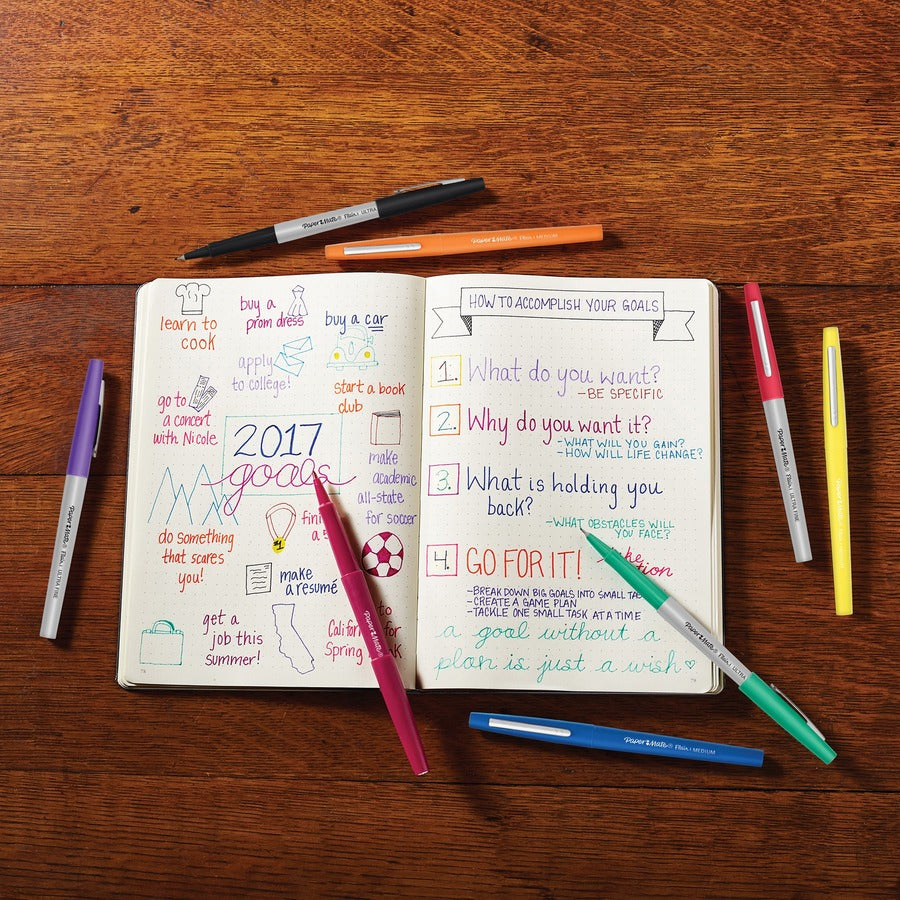 Paper Mate® Flair. ULTRA
Paper Mate® Flair. MEDIUM
learn to
cook
buy a
prom dress
buy a car
apply
to college!
start a book
club
go to
a concert
with Nicole
2017
goals
make
academic
all-state
for soccer
do something
that scares
you!
#1
make
a resumé
get a
job this
summer!
to
for
Spring
HOW TO ACCOMPLISH YOUR GOALS
1. What do you want?
-BE SPECIFIC
2. Why do you want it?
-WHAT WILL YOU GAIN?
-HOW WILL LIFE CHANGE?
3. What is holding you
back?
-WHAT OBSTACLES WILL
YOU FACE?
4. GO FOR IT!
-BREAK DOWN BIG GOALS INTO SMALL
-CREATE A GAME PLAN
-TACKLE ONE SMALL TASK AT A TIME
a goal without a
plan is just a wish
Paper Mate® Flair. ULTRA FINE
Paper Mate®
Paper Mate® Flair. ULTRA FINE
Paper Mate® Flair. MEDIUM
Paper Mate® Flair. ULTRA
Paper Mate® Flair. MEDIUM